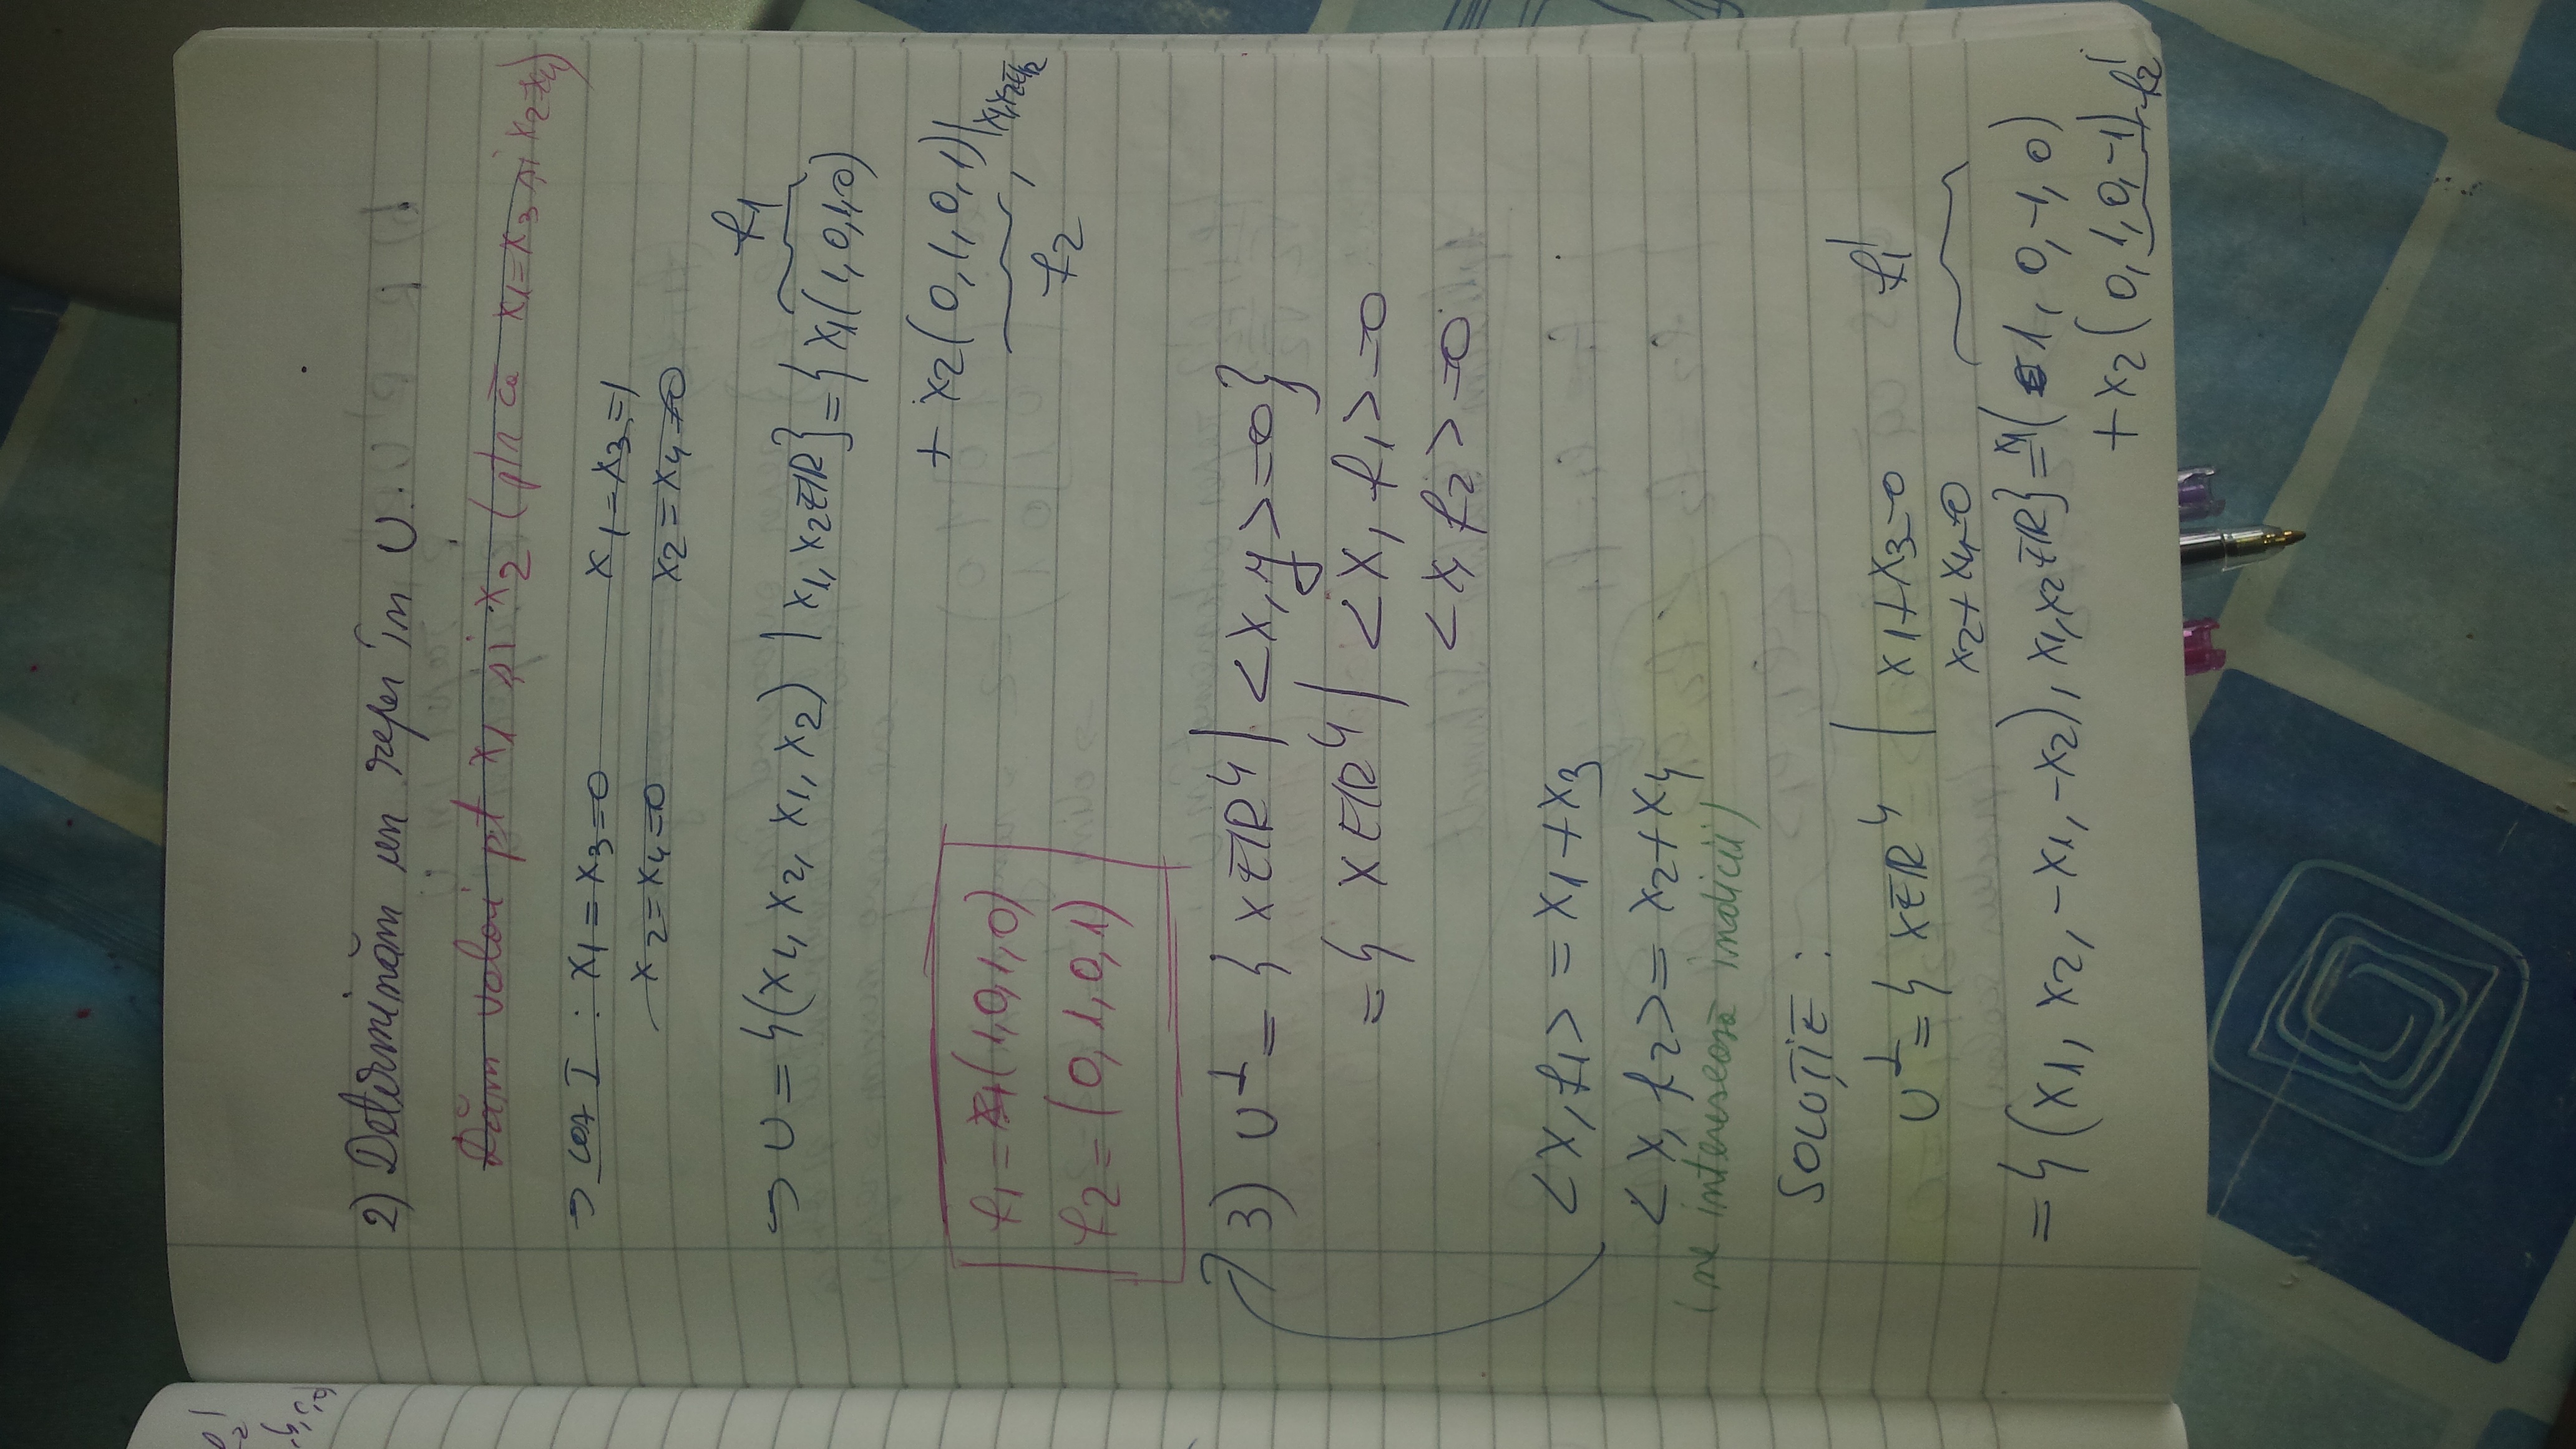 2) Determinăm un reper în U.
Dăm valori pt x1 și x2 (ptr că x1=x3 și x2=x4)
=> caz I : x1 = x3 = 0 x1 = x3 = 1
x2 = x4 = 0 x2 = x4 = 0
f1
=> U = {(x1, x2, x1, x2) | x1, x2 ∈ ℝ} = { x1(1, 0, 1, 0)
+ x2(0, 1, 0, 1) | x1, x2 ∈ ℝ
f2
f1 = (1, 0, 1, 0)
f2 = (0, 1, 0, 1)
3) U⊥ = { x ∈ ℝ4 | <x, y> = 0}
= { x ∈ ℝ4 | <x, f1> = 0
<x, f2> = 0
<x, f1> = x1 + x3
<x, f2> = x2 + x4
(ne interesează indicii)
SOLUȚIE :
U⊥ = { x ∈ ℝ4 | x1 + x3 = 0 f1'
x2 + x4 = 0
= { (x1, x2, -x1, -x2), x1, x2 ∈ ℝ} = x1 (1, 0, -1, 0)
+ x2 (0, 1, 0, -1) f2'